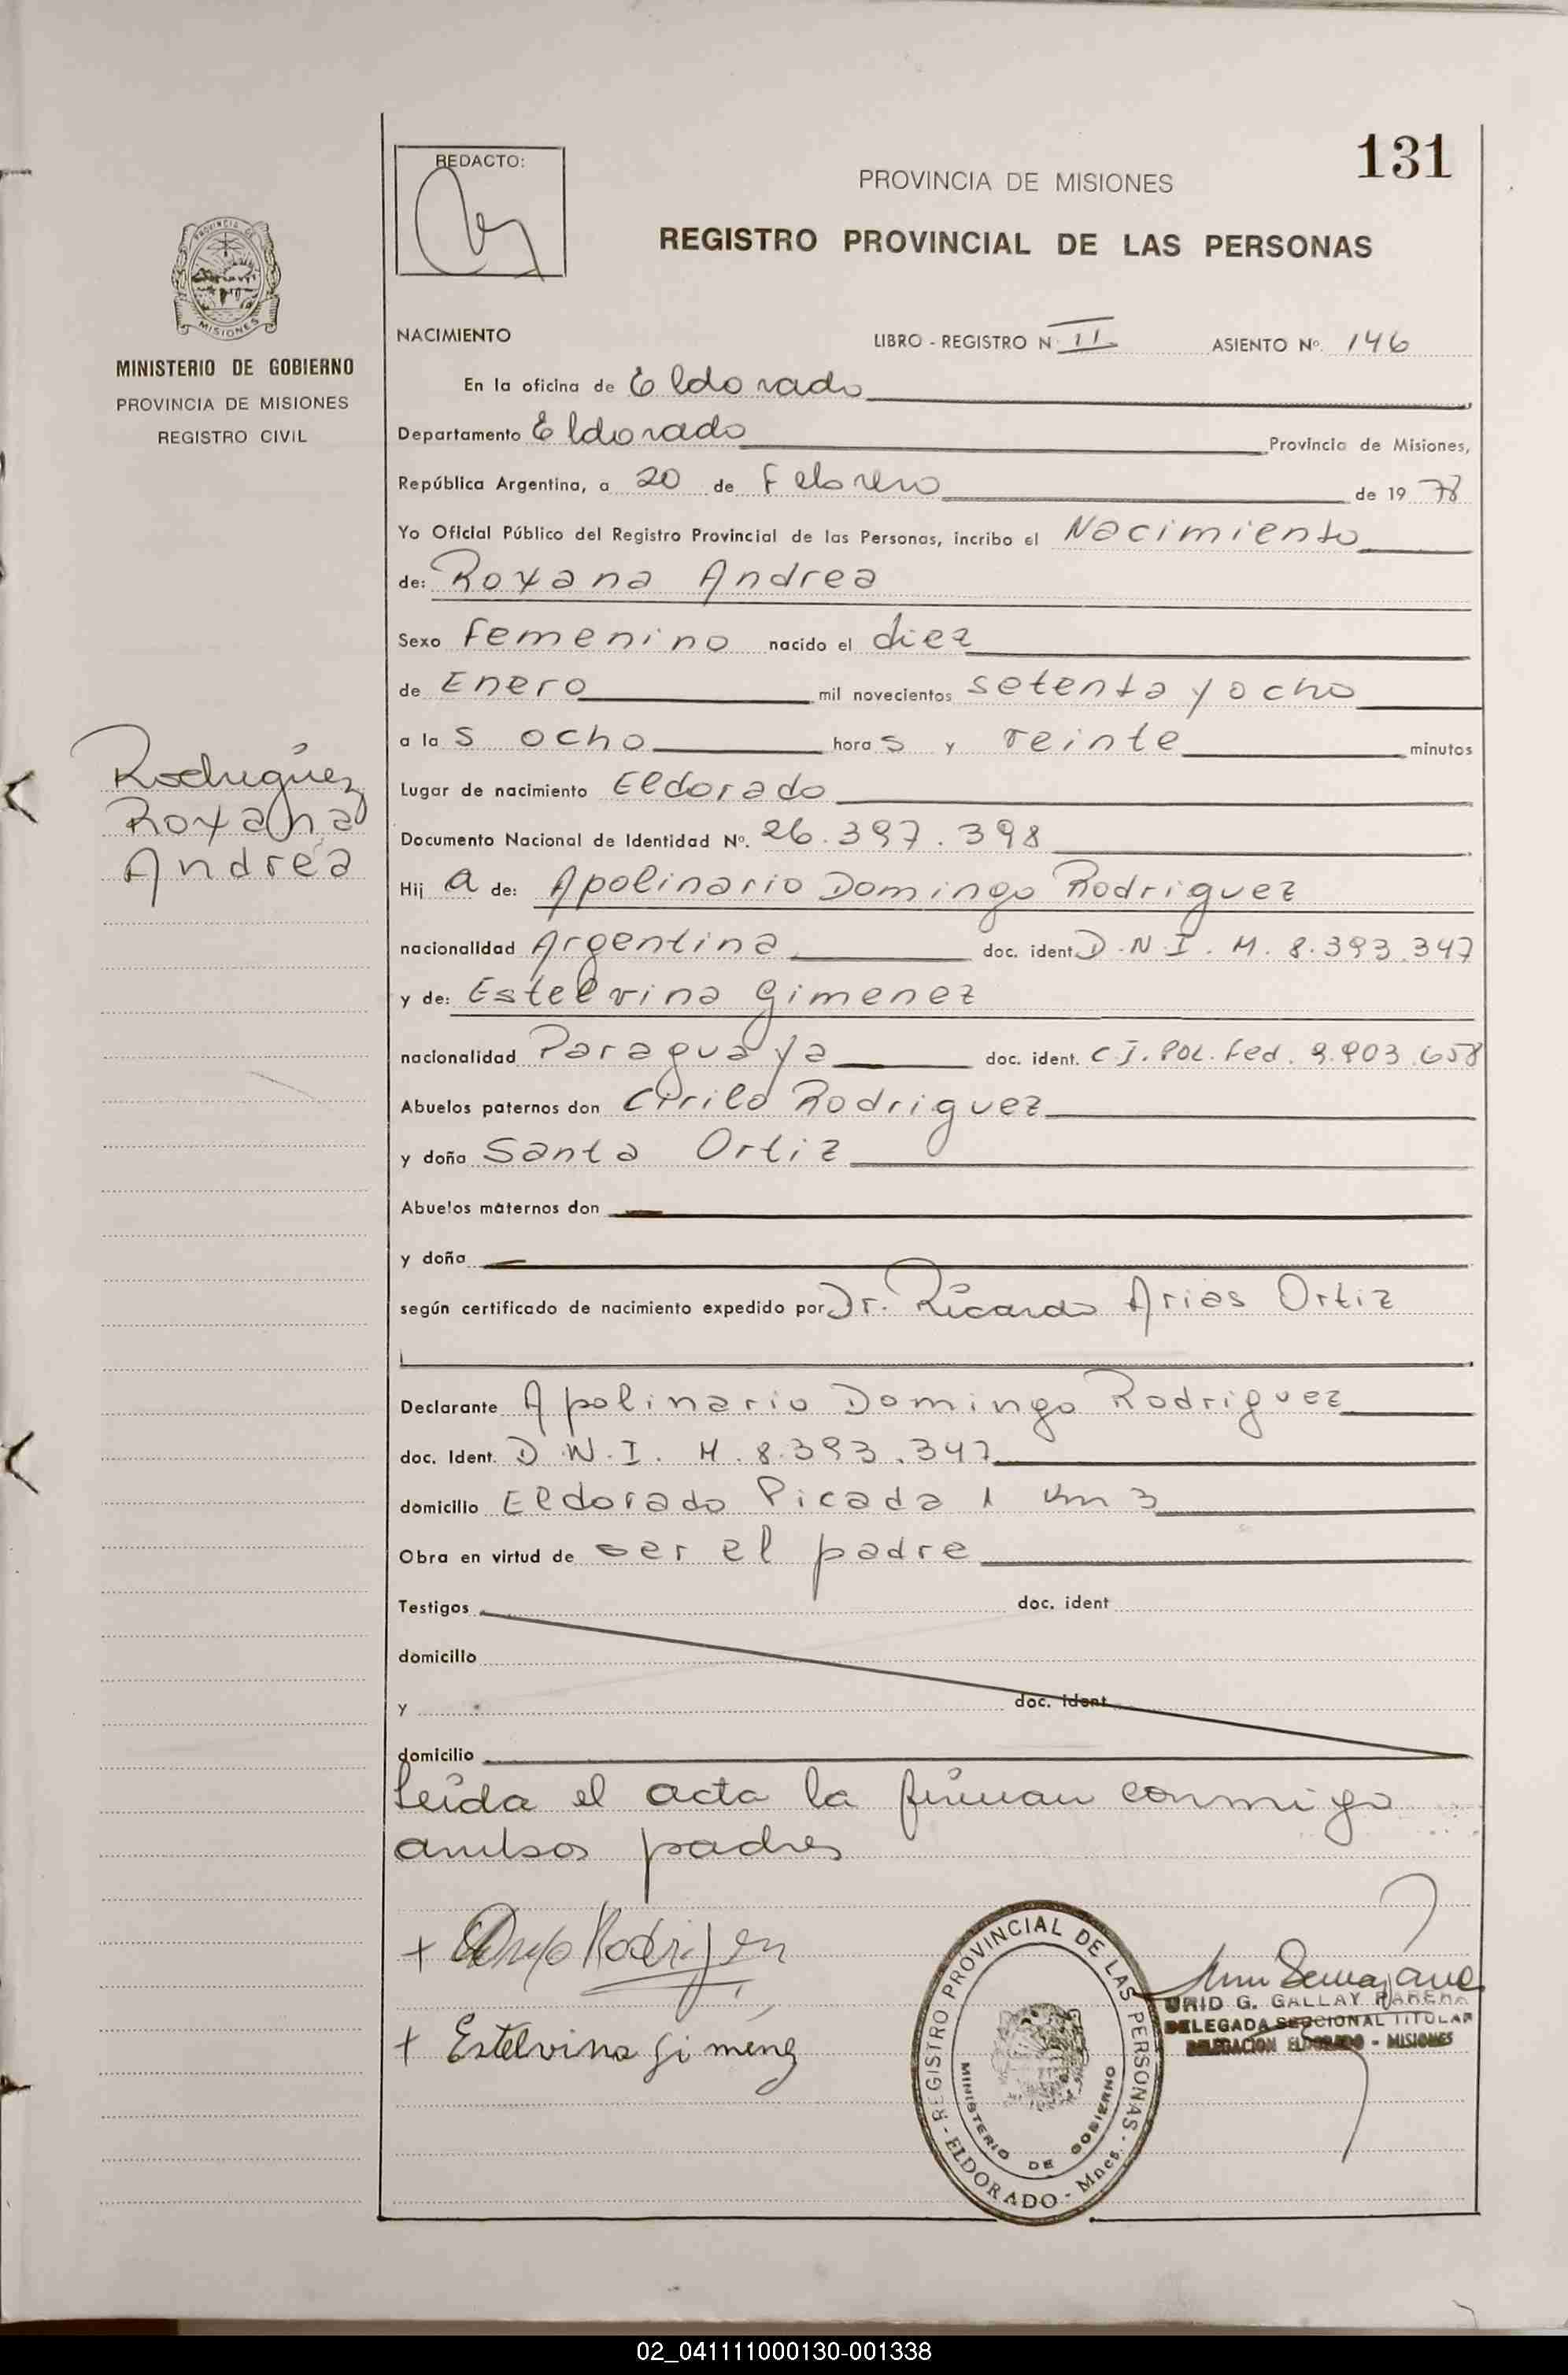 131
REDACTO:
PROVINCIA DE MISIONES
REGISTRO PROVINCIAL DE LAS PERSONAS
PROVINCIA DE
MISIONES
MINISTERIO DE GOBIERNO
PROVINCIA DE MISIONES
REGISTRO CIVIL
NACIMIENTO LIBRO - REGISTRO N II ASIENTO Nº. 146
En la oficina de Eldorado
Departamento Eldorado Provincia de Misiones,
República Argentina, a 20 de Febrero de 19 78
Yo Oficial Público del Registro Provincial de las Personas, incribo el Nacimiento
de: Roxana Andrea
Sexo Femenino nacido el diez
de Enero mil novecientos setenta y ocho
a la s ocho hora s y veinte minutos
Lugar de nacimiento Eldorado
Documento Nacional de Identidad Nº. 26.397.398
Rodriguez
Roxana
Andrea
Hij a de: Apolinario Domingo Rodriguez
nacionalidad Argentina doc. ident. D.N.I. M. 8.393.347
y de: Estelvina Gimenez
nacionalidad Paraguaya doc. ident. C.I. POL. Fed. 9.903.658
Abuelos paternos don Cirilo Rodriguez
y doña Santa Ortiz
Abuelos maternos don
y doña
según certificado de nacimiento expedido por Dr. Ricardo Arias Ortiz
Declarante Apolinario Domingo Rodriguez
doc. Ident. D.N.I. M. 8.393.347
domicilio Eldorado Picada 1 Km 3
Obra en virtud de ser el padre
Testigos doc. ident
domicilio
y doc. ident
domicilio
Leida el acta la firman conmigo
ambos padres
+ Rodriguez
+ Estelvina Gimenez
REGISTRO PROVINCIAL DE LAS PERSONAS - ELDORADO - Mnes. -
MINISTERIO DE GOBIERNO
G. GALLAY
DELEGADA SECCIONAL TITULAR
DELEGACION ELDORADO - MISIONES
02_041111000130-001338